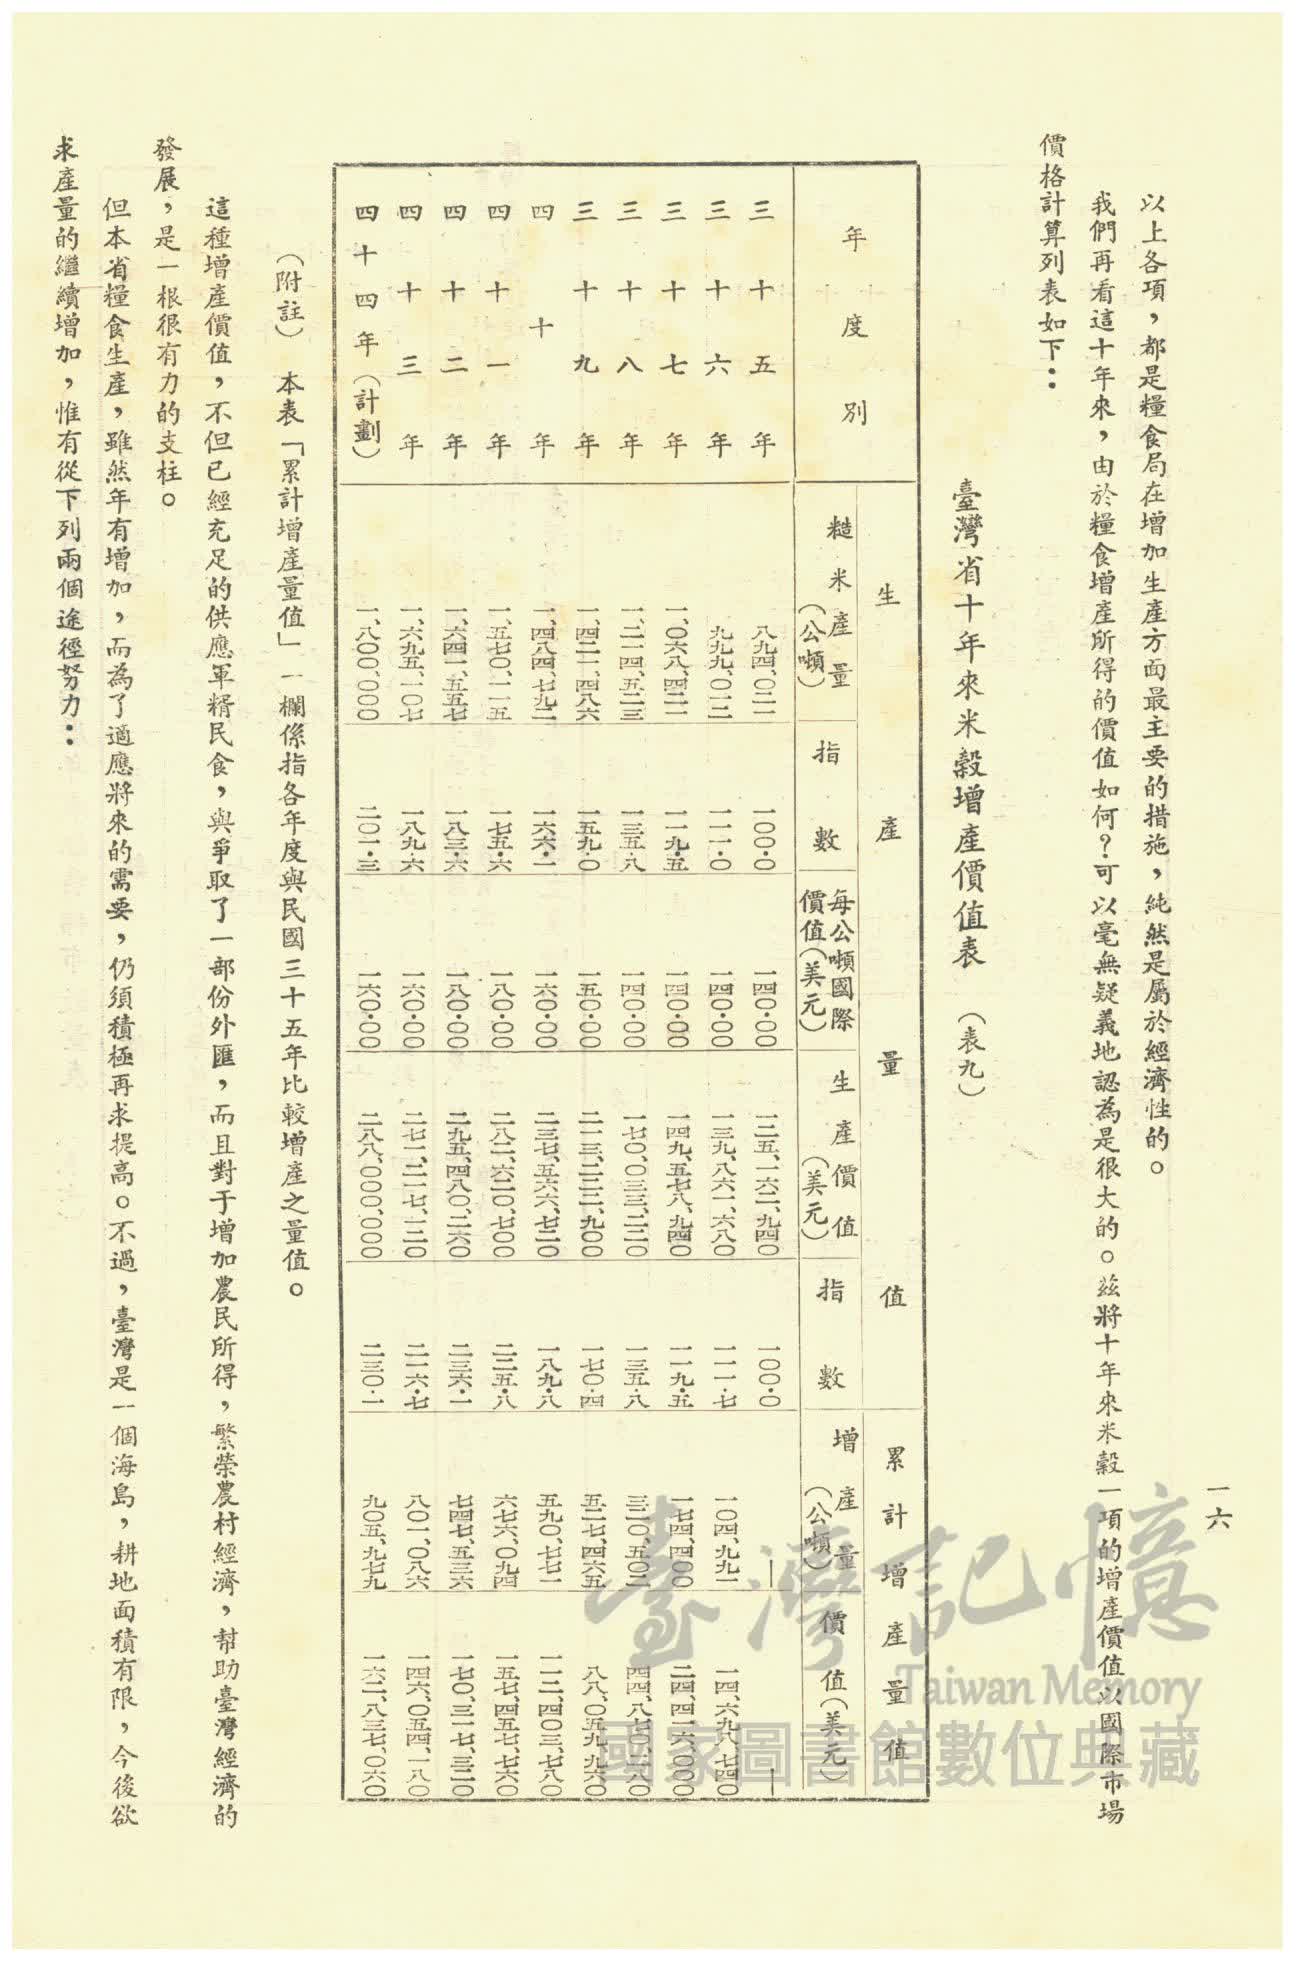 一六
以上各項，都是糧食局在增加生產方面最主要的措施，純然是屬於經濟性的。
我們再看這十年來，由於糧食增產所得的價值如何？可以毫無疑義地認為是很大的。茲將十年來米穀一項的增產價值以國際市場
價格計算列表如下：
臺灣省十年來米穀增產價值表　（表九）
年度別　生產量值　累計增產量值
糙米產量（公噸）　指數　每公噸國際價值（美元）　生產價值（美元）　指數　增產量（公噸）　價值（美元）
三十五年　八九四、〇二一　一〇〇·〇　一四〇·〇〇　一二五、一六二、九四〇　一〇〇·〇　—　—
三十六年　九九九、〇一二　一一一·〇　一四〇·〇〇　一三九、八六一、六八〇　一一一·七　一〇四、九九一　一四、六九八、七四〇
三十七年　一、〇六八、四二一　一一九·五　一四〇·〇〇　一四九、五七八、九四〇　一一九·五　一七四、四〇〇　二四、四一六、〇〇〇
三十八年　一、二一四、五二三　一三五·八　一四〇·〇〇　一七〇、〇三三、二二〇　一三五·八　三二〇、五〇二　四四、八七〇、二八〇
三十九年　一、四二一、四八六　一五九·〇　一五〇·〇〇　二一三、二二二、九〇〇　一七〇·四　五二七、四六五　八八、〇五九、九六〇
四十年　一、四八四、七九二　一六六·一　一六〇·〇〇　二三七、五六六、七二〇　一八九·八　五九〇、七七一　一一二、四〇三、七八〇
四十一年　一、五七〇、一一五　一七五·六　一八〇·〇〇　二八二、六二〇、七〇〇　二二五·八　六七六、〇九四　一五七、四五七、七六〇
四十二年　一、六四一、五五七　一八三·六　一八〇·〇〇　二九五、四八〇、二六〇　二三六·一　七四七、五三六　一七〇、三一七、三二〇
四十三年　一、六九五、一〇七　一八九·六　一六〇·〇〇　二七一、二一七、一二〇　二一六·七　八〇一、〇八六　一四六、〇五四、一八〇
四十四年（計劃）　一、八〇〇、〇〇〇　二〇一·三　一六〇·〇〇　二八八、〇〇〇、〇〇〇　二三〇·一　九〇五、九七九　一六二、八三七、〇六〇
（附註）　本表「累計增產量值」一欄係指各年度與民國三十五年比較增產之量值。
這種增產價值，不但已經充足的供應軍糈民食，與爭取了一部份外匯，而且對于增加農民所得，繁榮農村經濟，幫助臺灣經濟的
發展，是一根很有力的支柱。
但本省糧食生產，雖然年有增加，而為了適應將來的需要，仍須積極再求提高。不過，臺灣是一個海島，耕地面積有限，今後欲
求產量的繼續增加，惟有從下列兩個途徑努力：
臺灣記憶
Taiwan Memory
國家圖書館數位典藏